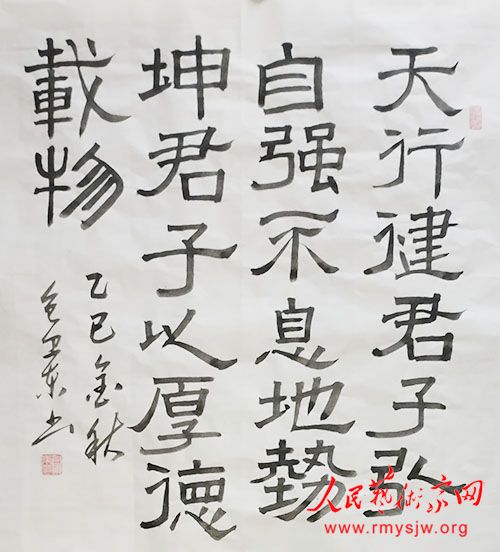 天行健君子以
自强不息地勢
坤君子以厚德
載物
乙巳金秋
包卫东书
人民藝術家网
www.rmysjw.org